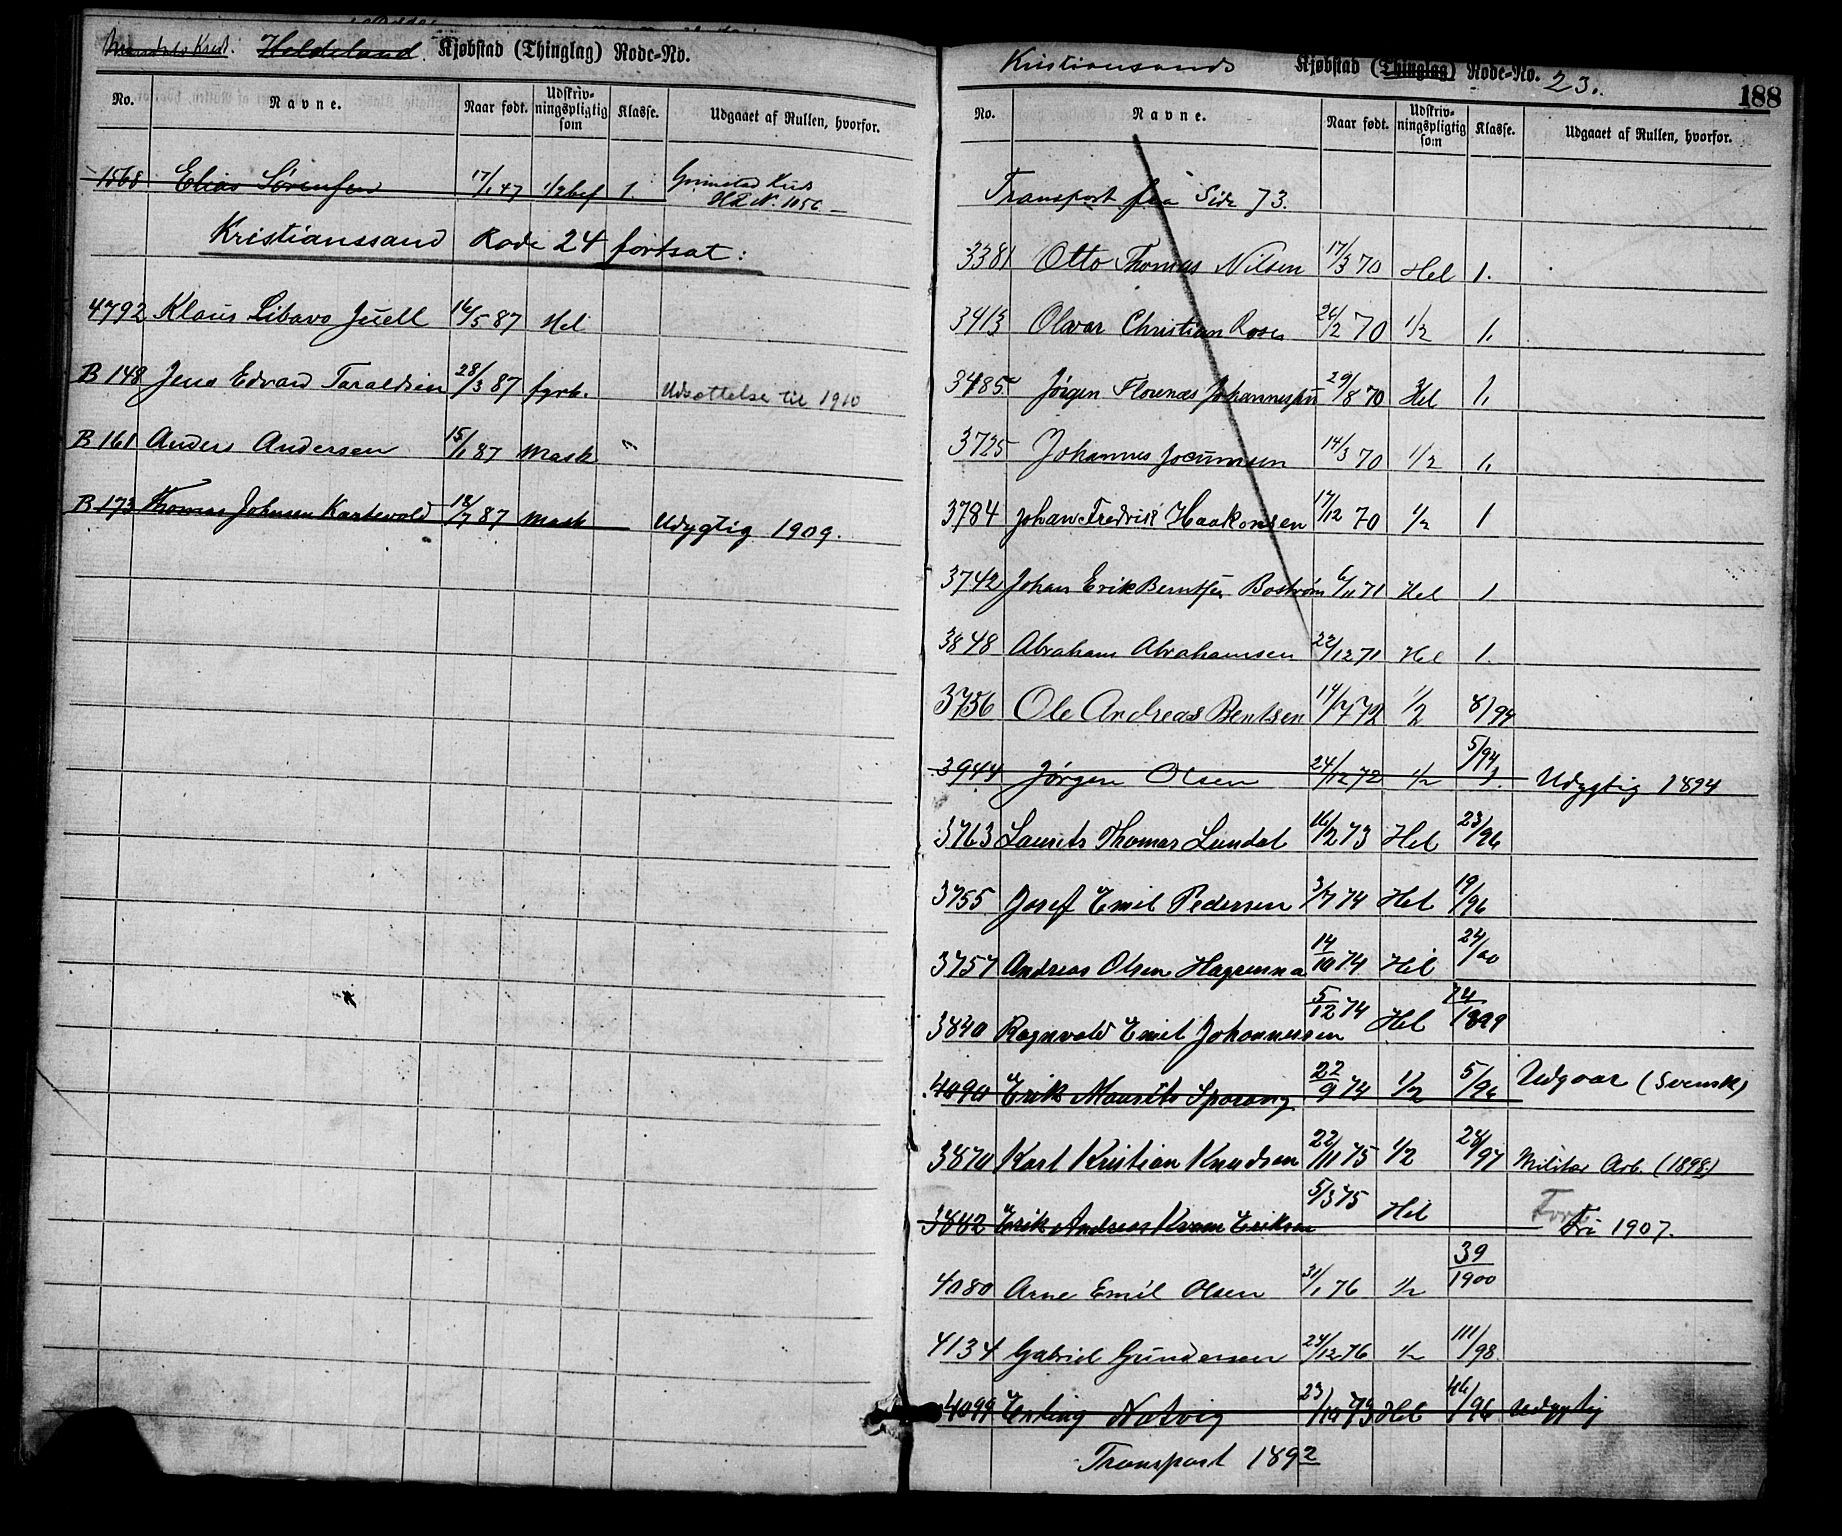 Mandals Kred. Haldeland. Kjøbstad (Thinglag) Rode-No.
No. Navne. Naar født. Udskrivningspligtig som Klasse. Udgaaet af Rullen, hvorfor.
1568 Elias Sørensen 17/1 47 1/2 bef 1. Grimstad Kreds
H.R. N. 1056.
Kristianssand Rode 24 fortsat:
4792 Klaus Libavs Juell 16/5 87 Hel
B 148 Jens Edvard Taraldsen 28/3 87 fyrb. Udsættelse til 1910
B 161 Anders Andersen 15/1 87 Mask "
B 173 Thomas Johnsen Kartevold 18/7 87 Mask Udygtig 1909.
Kristianssands Kjøbstad (Thinglag) Rode-No. 23. 188
No. Navne. Naar født. Udskrivningspligtig som Klasse. Udgaaet af Rullen, hvorfor.
Transport fra Side 73.
3381 Otto Thomas Nilsen 17/3 70 Hel 1.
3413 Olvar Christian Rose 26/2 70 1/2 1.
3485 Jørgen Florenæs Johannessen 29/8 70 Hel 1.
3725 Johannes Jocumsen 14/3 70 1/2 1.
3784 Johan Fredrik Haakonsen 17/12 70 1/2 1
3742 Johan Erik Berntsen Bostrøm 6/11 71 Hel 1
3848 Abraham Abrahamsen 22/12 71 Hel 1.
3756 Ole Andreas Bentsen 14/7 72 1/2 8/94
3944 Jørgen Olsen 24/12 72 1/2 5/94 1. Udygtig 1894
3763 Laurits Thomas Lundal 16/2 73 Hel 23/96
3755 Josef Emil Pedersen 3/7 74 Hel 19/96
3757 Andreas Olsen Hagrumna 14/10 74 Hel 24/00
3840 Ragnvald Emil Johannessen 5/12 74 Hel 74/1899
4090 Erik Maurits Sparang 22/9 74 1/2 5/96 Udgaar (Svensk)
3870 Karl Kristian Knudsen 22/11 75 1/2 28/97 Militær Arb. (1898)
3882 Erik Andreas Kvam Eriksen 5/3 75 Hel Fri 1907.
4080 Arne Emil Olsen 31/1 76 1/2 39/1900
4134 Gabriel Gundersen 24/12 76 1/2 111/98
4099 Erling Natvig 23/10 73 Hel 46/96 Udygtig
Transport 1892